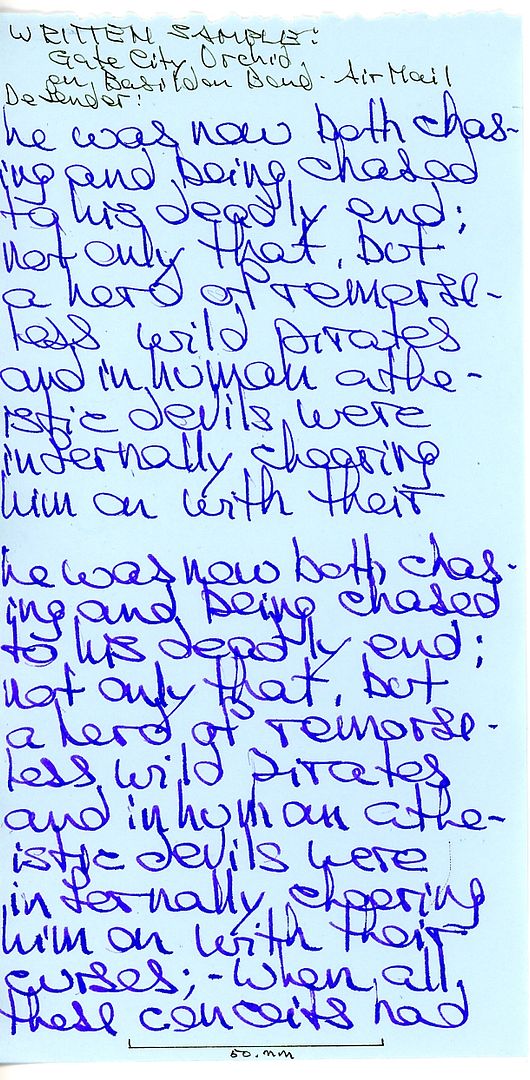 WRITTEN SAMPLE:
Gate City Orchid,
on Basildon Bond - Air Mail
Defender:
he was now both chas-
ing and being chased
to his deadly end;
not only that, but
a herd of remorse-
less wild pirates
and inhuman athe-
istic devils were
infernally cheering
him on with their
he was now both chas-
ing and being chased
to his deadly end;
not only that, but
a herd of remorse-
less wild pirates
and inhuman athe-
istic devils were
infernally cheering
him on with their
curses; - when all
these conceits had
50. mm